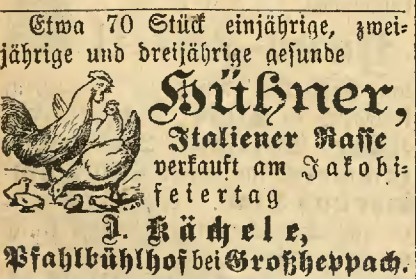 Etwa 70 Stück einjährige, zwei-
jährige und dreijährige gesunde
Hühner,
Italiener Rasse
verkauft am Jakobi-
feiertag
J. Kächele,
Pfahlbühlhof bei Großheppach.